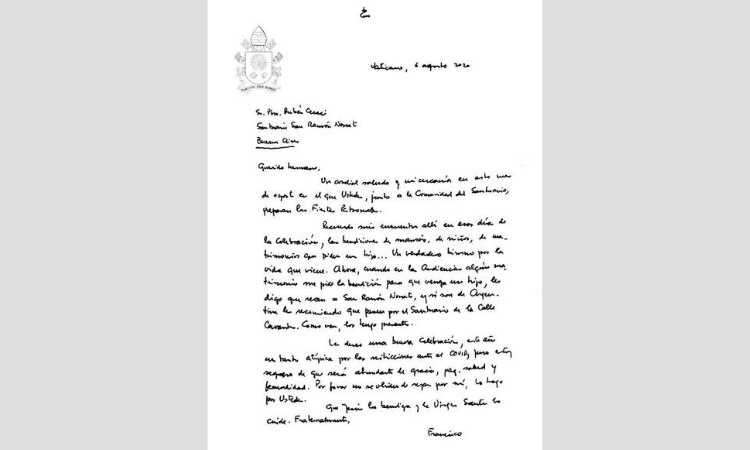 Vaticano, 6 agosto 2020
Sr. Pbro. Rubén Ceraci
Santuario San Ramón Nonato
Buenos Aires
Querido hermano,
Un cordial saludo y mi cercanía en este mes
de agosto en el que Ustedes, junto a la Comunidad del Santuario,
preparan las Fiestas Patronales.
Recuerdo mis encuentros allí en esos días de
la Celebración, las bendiciones de mamás, de niños, de ma-
trimonios que piden un hijo... Un verdadero himno por la
vida que viene. Ahora, cuando en la Audiencia algún ma-
trimonio me pide la bendición para que venga un hijo, les
digo que recen a San Ramón Nonato, y si son de Argen-
tina les recomiendo que pasen por el Santuario de la Calle
Cervantes. Como ven, los tengo presente.
Le deseo una buena Celebración, este año
un tanto atípica por las restricciones ante el COVID, pero estoy
seguro de que será abundante de gracia, paz, salud y
fecundidad. Por favor no se olviden de rezar por mí, lo hago
por Ustedes.
Que Jesús los bendiga y la Virgen Santa los
cuide. Fraternalmente,
Francisco